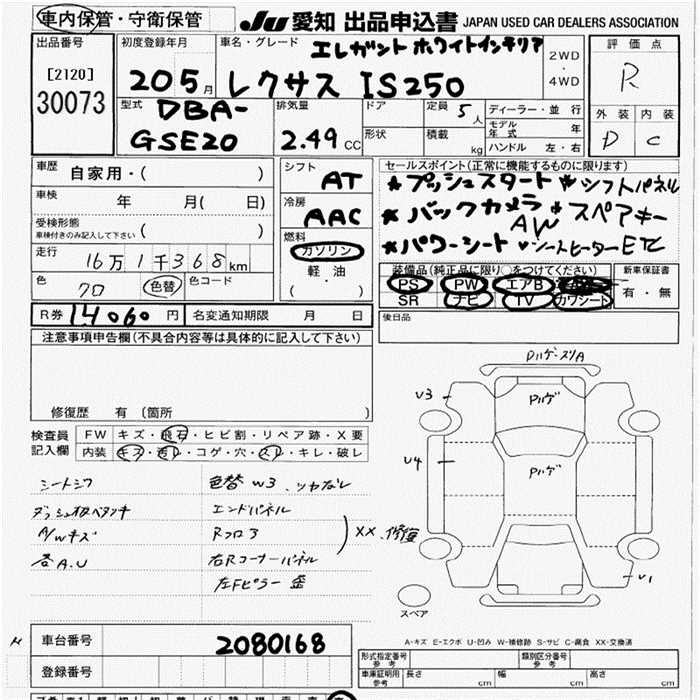 車内保管・守衛保管
JU 愛知 出品申込書 JAPAN USED CAR DEALERS ASSOCIATION
出品番号
[2120]
30073
初度登録年月
205月
車名・グレード
エレガント ホワイトインテリア
レクサス IS250
2WD
・
4WD
評価点
R
外装 内装
D C
型式
DBA-
GSE20
排気量
2.49 CC
ドア
形状
定員 5人
積載 kg
ディーラー・並行
モデル年式 年
ハンドル 左・右
車歴 自家用・( )
車検 年 月( 日)
受検形態
車検付きのみ記入して下さい ( )
走行 16万1千368km
色 クロ 色替 色コード
シフト
AT
冷房
AAC
燃料
ガソリン
軽油
( ・ )
セールスポイント(正常に機能するものに限ります)
★プッシュスタート ★シフトパネル
★バックカメラ ★スペアキー
AW
★パワーシート ★シートヒーター ETC
装備品(純正品に限り○をつけてください)
PS PW エアB
SR ナビ TV カワシート
新車保証書
有・無
R券 14060円
名変通知期限 月 日
後日品
注意事項申告欄(不具合内容等は具体的に記入して下さい)
修復歴 有(箇所 )
検査員
記入欄
FW キズ・飛石・ヒビ割・リペア跡・X要
内装 キズ・汚レ・コゲ・穴・スレ・キレ・破レ
シートシワ
ダッシュ板ベタツキ
A/Wキズ
各A.U
色替 W3
エンドパネル
Rフロア
右Rコーナーパネル
左Fピラー 歪
XX.修復
Pハゲ・スリA
Pハゲ
Pハゲ
U3
U4
U1
スペア
A-キズ E-エクボ U-凹み W-補修跡 S-サビ C-腐食 XX-交換済
車台番号 2080168
登録番号
形式指定番号
参考
類別区分番号
参考
車庫証明用
参考
長さ cm 幅 cm 高さ cm